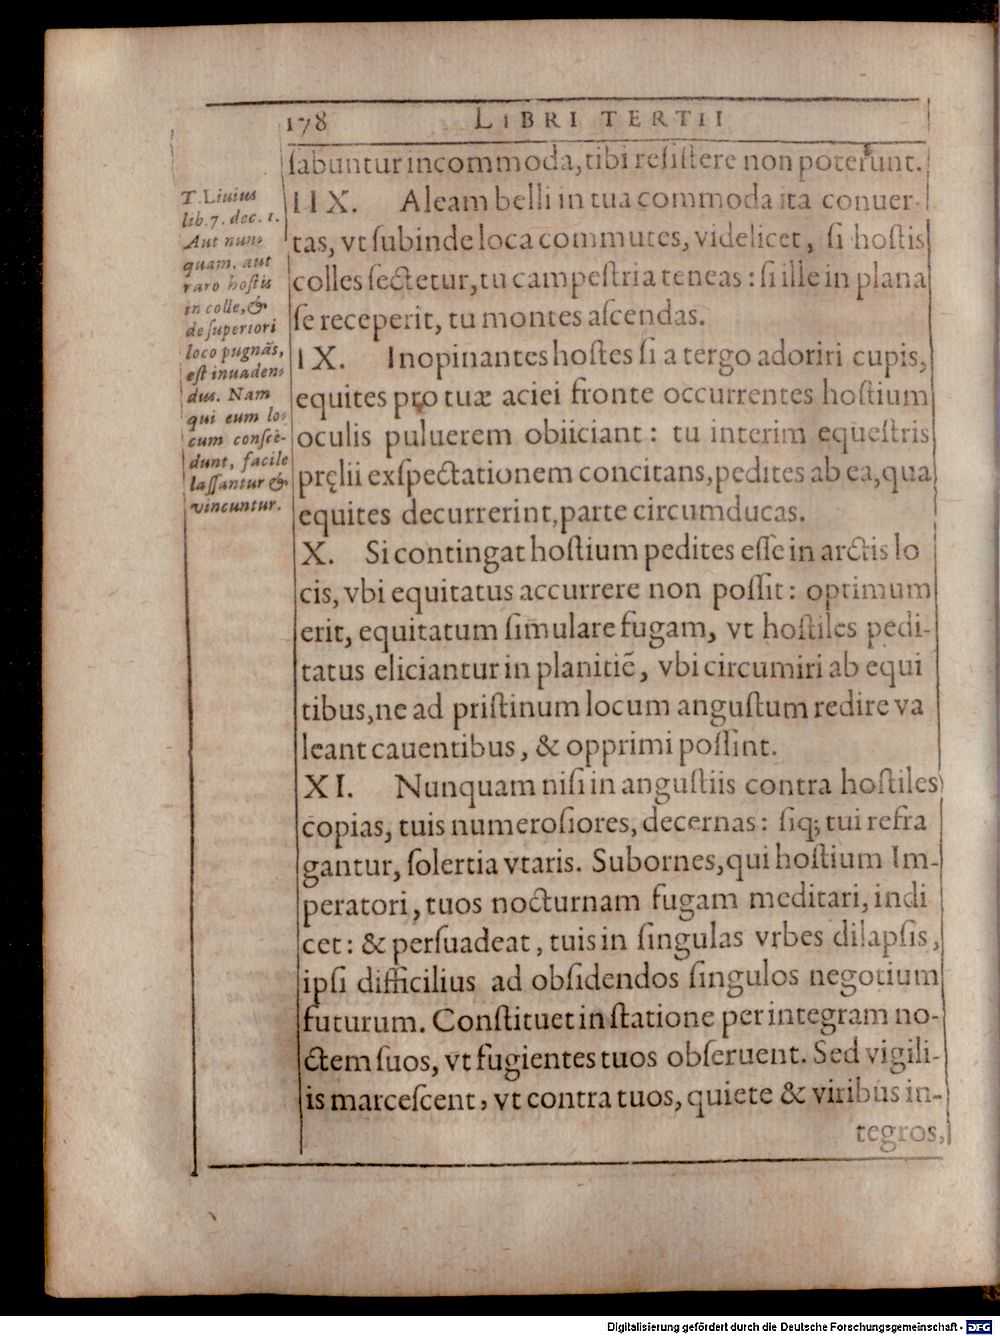 178 LIBRI TERTII
ſabuntur incommoda, tibi reſiſtere non poterunt.
IIX. Aleam belli in tua commoda ita conuer-
tas, vt ſubinde loca commutes, videlicet, ſi hoſtis
colles ſectetur, tu campeſtria teneas: ſi ille in plana
ſe receperit, tu montes aſcendas.
IX. Inopinantes hoſtes ſi a tergo adoriri cupis,
equites pro tuæ aciei fronte occurrentes hoſtium
oculis puluerem obiiciant: tu interim equeſtris
pręlii exſpectationem concitans, pedites ab ea, qua
equites decurrerint, parte circumducas.
X. Si contingat hoſtium pedites eſſe in arctis lo
cis, vbi equitatus accurrere non poſſit: optimum
erit, equitatum ſimulare fugam, vt hoſtiles pedi-
tatus eliciantur in planitiē, vbi circumiri ab equi
tibus, ne ad priſtinum locum anguſtum redire va
leant cauentibus, & opprimi poſſint.
XI. Nunquam niſi in anguſtiis contra hoſtiles
copias, tuis numeroſiores, decernas: ſiq; tui refra
gantur, ſolertia vtaris. Subornes, qui hoſtium Im-
peratori, tuos nocturnam fugam meditari, indi
cet: & perſuadeat, tuis in ſingulas vrbes dilapſis,
ipſi difficilius ad obſidendos ſingulos negotium
futurum. Conſtituet in ſtatione per integram no-
ctem ſuos, vt fugientes tuos obſeruent. Sed vigili-
is marceſcent, vt contra tuos, quiete & viribus in-
tegros,
T. Liuius
lib. 7. dec. 1.
Aut nun-
quam, aut
raro hoſtis
in colle, &
de ſuperiori
loco pugnãs,
eſt inuaden-
dus. Nam
qui eum lo-
cum conſcē-
dunt, facile
laſſantur &
vincuntur.
Digitalisierung gefördert durch die Deutsche Forschungsgemeinschaft - DFG